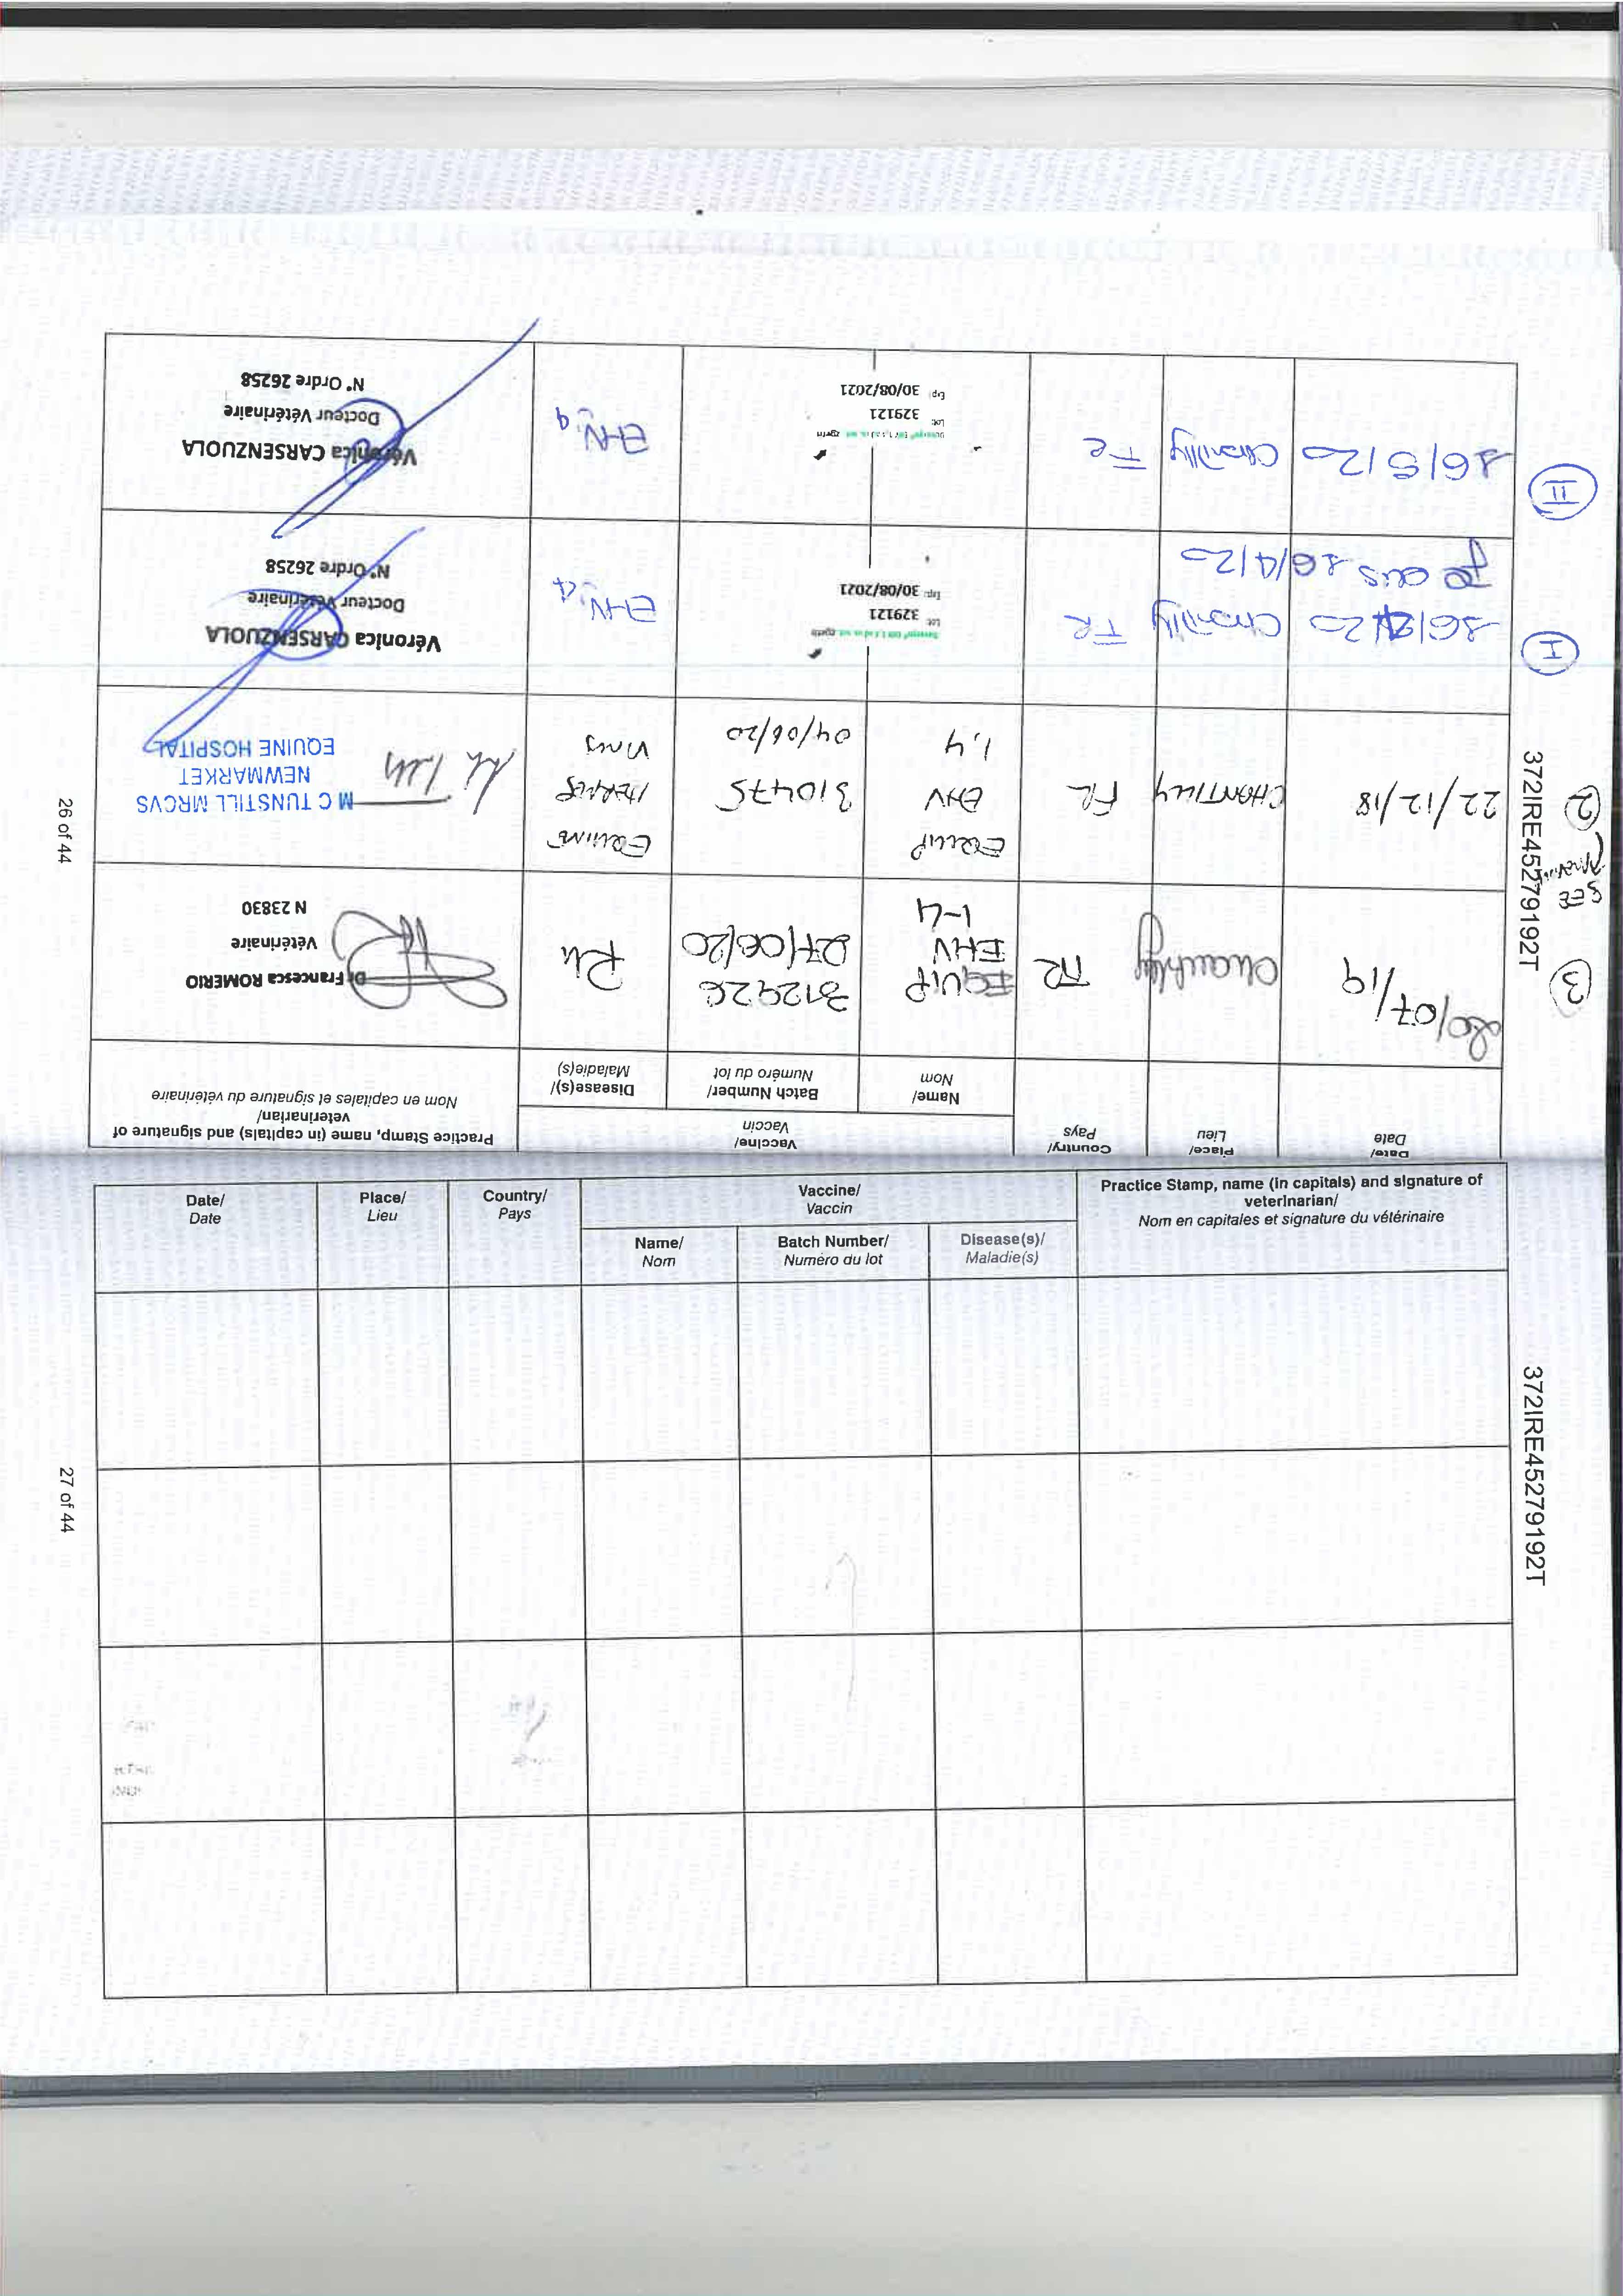 Date/
Date
Place/
Lieu
Country/
Pays
Vaccine/
Vaccin
Name/
Nom
Batch Number/
Numéro du lot
Disease(s)/
Maladie(s)
Practice Stamp, name (in capitals) and signature of
veterinarian/
Nom en capitales et signature du vétérinaire
3
20/07/19
Chantilly
FR
EQUIP
EHV
1-4
312926
27/06/20
Rh
Dr Francesca ROMERIO
Vétérinaire
N 23830
SEE
2
22/12/18
CHANTILLY
FR
EQUIP
EHV
1,4
310475
04/06/20
EQUINE
HERPES
VIRUS
M C TUNSTILL MRCVS
NEWMARKET
EQUINE HOSPITAL
I
Chantilly
FR
Je dis 16/4/20
Lot: 329121
Exp: 30/08/2021
EHV1,4
Véronica CARSENZUOLA
Docteur Vétérinaire
N° Ordre 26258
II
16/5/20
Chantilly
FR
Lot: 329121
Exp: 30/08/2021
EHV1,4
Véronica CARSENZUOLA
Docteur Vétérinaire
N° Ordre 26258
372IRE45279192T
26 of 44
Date/
Date
Place/
Lieu
Country/
Pays
Vaccine/
Vaccin
Name/
Nom
Batch Number/
Numéro du lot
Disease(s)/
Maladie(s)
Practice Stamp, name (in capitals) and signature of
veterinarian/
Nom en capitales et signature du vétérinaire
372IRE45279192T
27 of 44